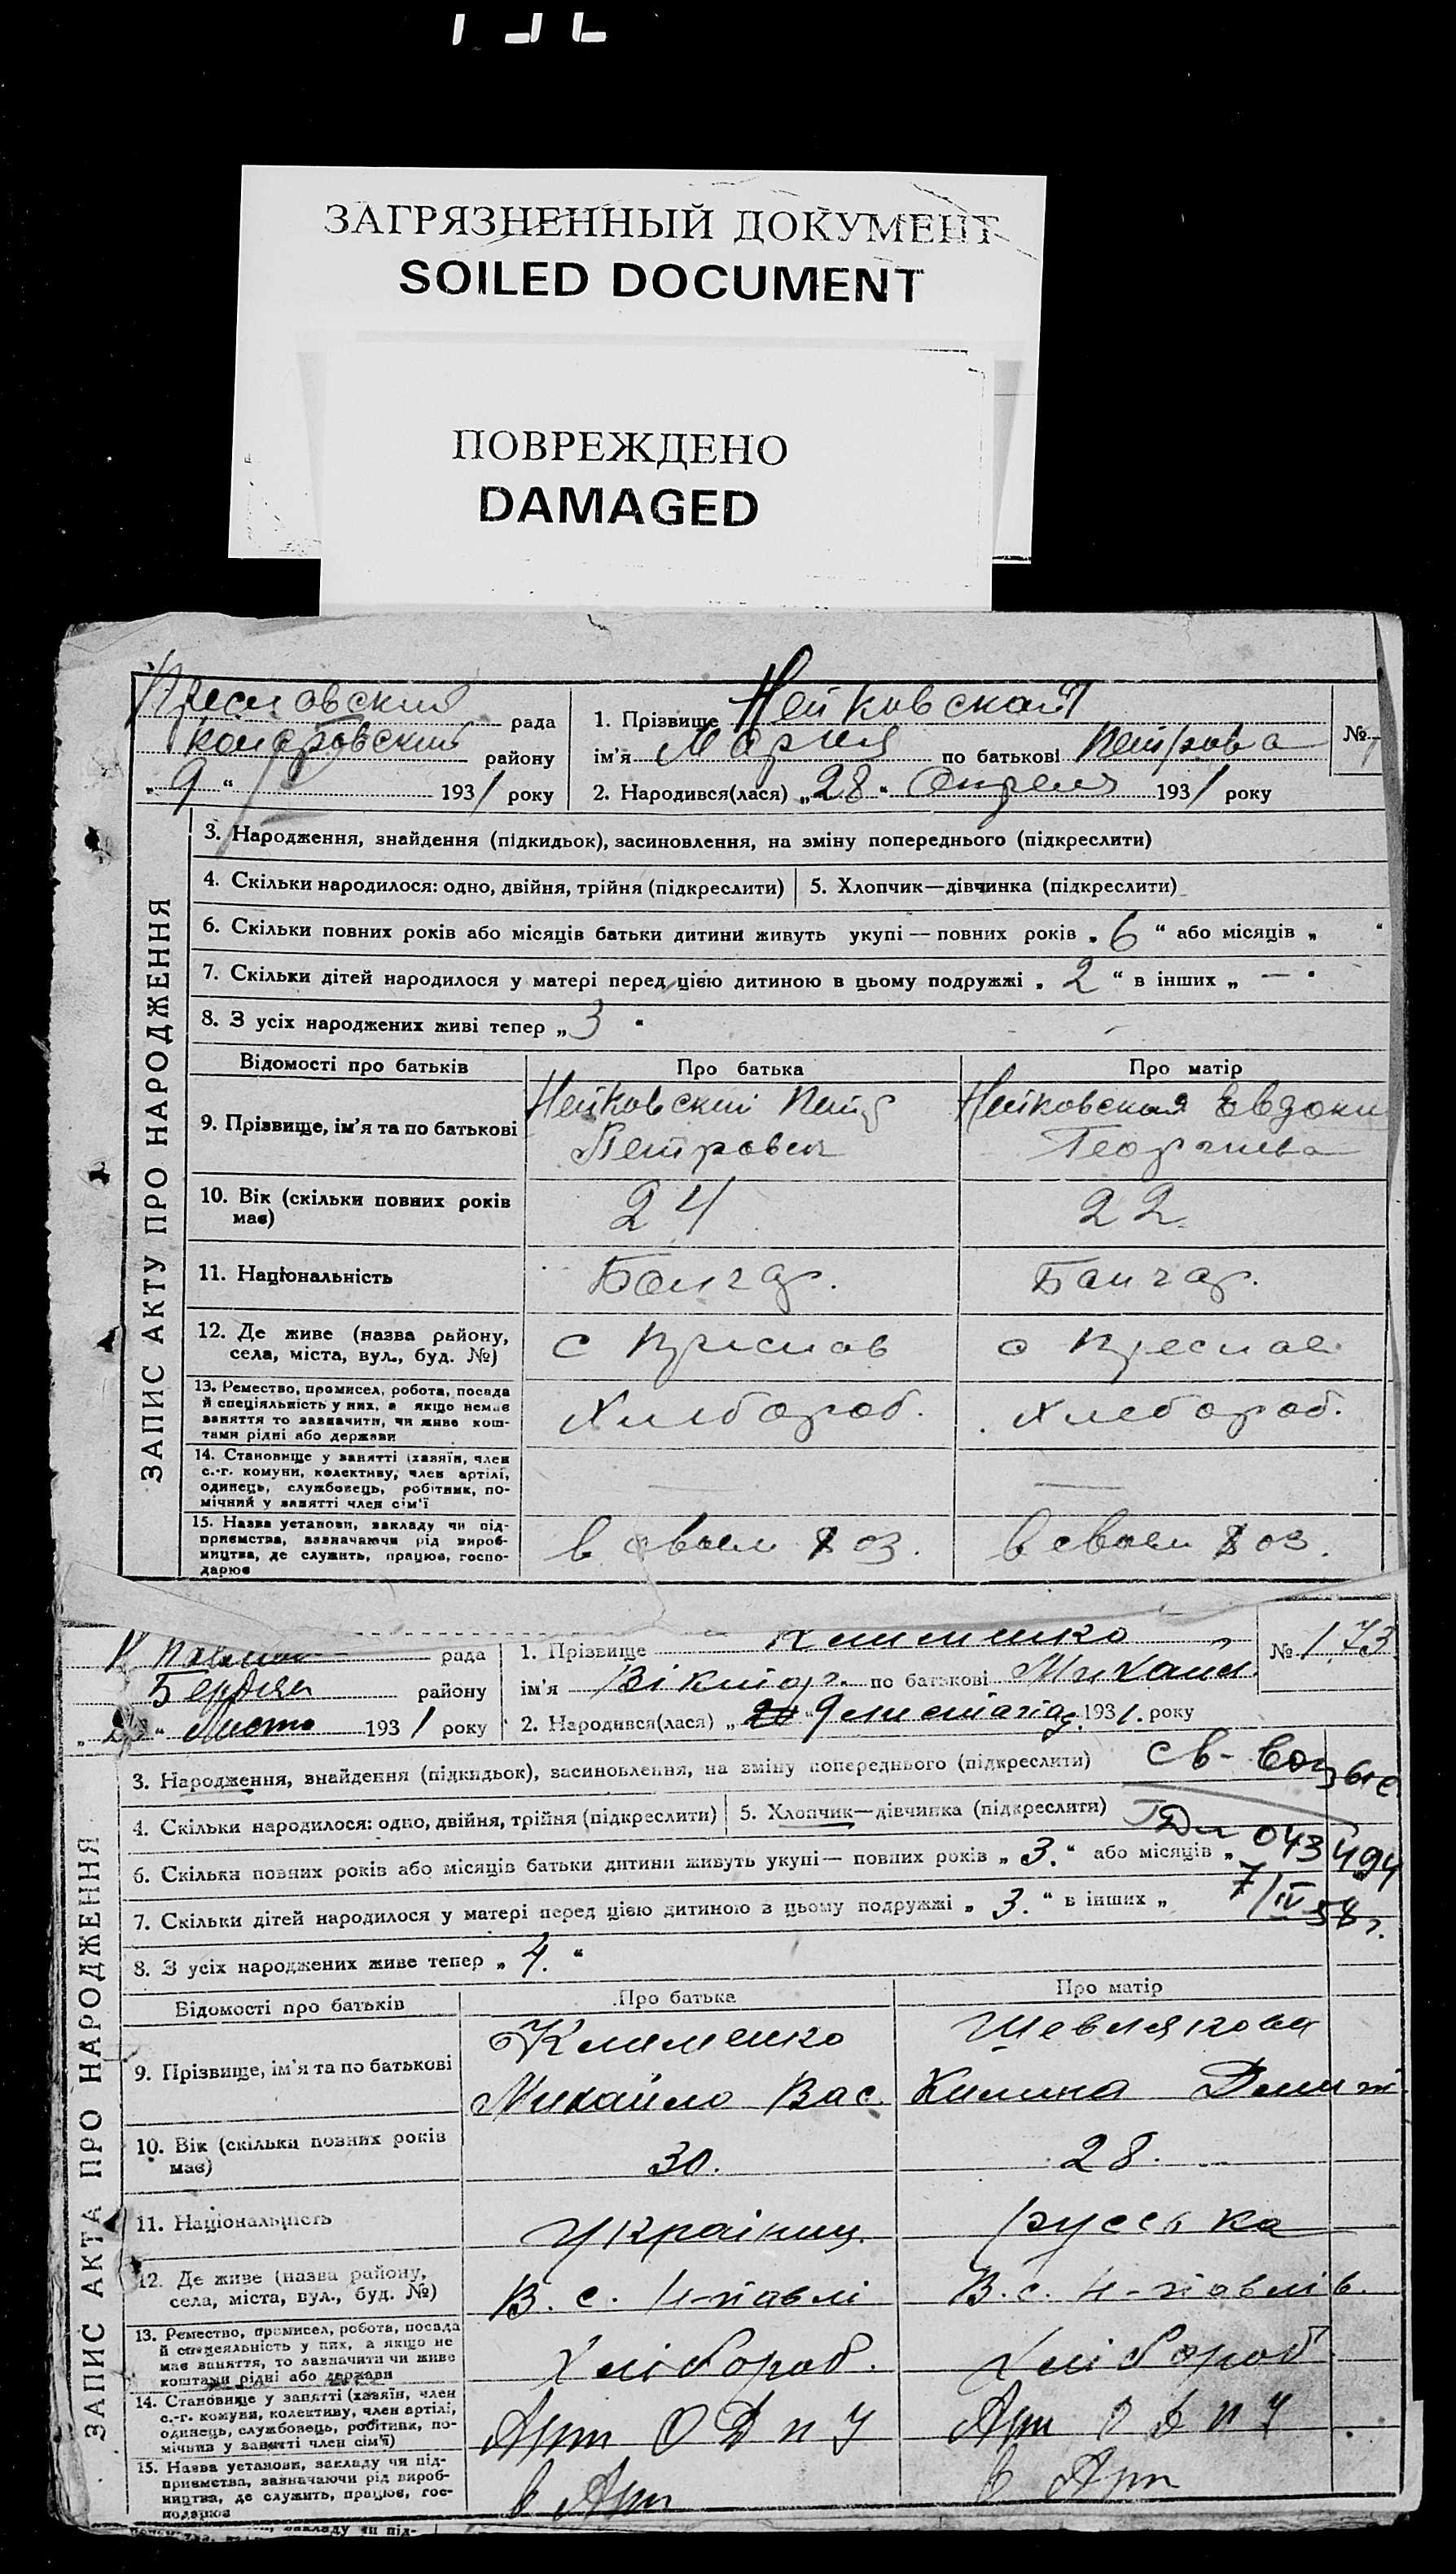 ЗАГРЯЗНЕННЫЙ ДОКУМЕНТ
SOILED DOCUMENT
ПОВРЕЖДЕНО
DAMAGED
рада
району
„ 9 “ 1931 року
1. Прізвище Нейковская
ім'я Мария по батькові Петрова
2. Народився(лася) „ 28 “ Апреля 1931 року
№
ЗАПИС АКТУ ПРО НАРОДЖЕННЯ
3. Народження, знайдення (підкидьок), засиновлення, на зміну попереднього (підкреслити)
4. Скільки народилося: одно, двійня, трійня (підкреслити) 5. Хлопчик—дівчинка (підкреслити)
6. Скільки повних років або місяців батьки дитини живуть укупі — повних років „ 6 “ або місяців „ “
7. Скільки дітей народилося у матері перед цією дитиною в цьому подружжі „ 2 “ в інших „ —
8. З усіх народжених живі тепер „ 3 “
Відомості про батьків Про батька Про матір
9. Прізвище, ім'я та по батькові
Нейковский Петр
Петрович
Нейковская Евдоки
Георгиева
10. Вік (скільки повних років має)
24
22
11. Національність
Болгар.
Болгар.
12. Де живе (назва району,
села, міста, вул., буд. №)
13. Ремество, промисел, робота, посада
й спеціяльність у них, а якщо немає
заняття то зазначити, чи живе кош-
тами рідні або держави
Хлебороб.
Хлебороб.
14. Становище у занятті (хазяїн, член
с.-г. комуни, колективу, член артілі,
одинець, службовець, робітник, по-
мічний у занятті член сім'ї
—
—
15. Назва установи, закладу чи під-
приємства, зазначаючи рід вироб-
ництва, де служить, працює, госпо-
дарює
в своем хоз.
в своем хоз.
рада
Бердян району
“ Листо 1931 року
1. Прізвище Клименко
ім'я Віктор. по батькові Михайл
2. Народився(лася) „ 20 “ 9 листопад. 1931. року
№ 173
ЗАПИС АКТА ПРО НАРОДЖЕННЯ
3. Народження, знайдення (підкидьок), засиновлення, на зміну попереднього (підкреслити)
4. Скільки народилося: одно, двійня, трійня (підкреслити) 5. Хлопчик—дівчинка (підкреслити)
043494
7/IV 58г.
6. Скільки повних років або місяців батьки дитини живуть укупі— повних років „ 3. “ або місяців „
7. Скільки дітей народилося у матері перед цією дитиною в цьому подружжі „ 3. “ в інших „
8. З усіх народжених живе тепер „ 4. “
Відомості про батьків Про батька Про матір
9. Прізвище, ім'я та по батькові
Клименко
Михайло Вас
Шевлякова
Килина Дмит
10. Вік (скільки повних років має)
30.
28.
11. Національність
Українц.
руська
12. Де живе (назва району,
села, міста, вул., буд. №)
В. с. Н-павлі
В. с. Н-павлів.
13. Ремество, промисел, робота, посада
й спецеяльність у них, а якщо не
має заняття, то зазначити чи живе
коштами рідні або держави
Хлібороб.
Хлібороб
14. Становище у занятті (хазяїн, член
с.-г. комуни, колективу, член артілі,
одинець, службовець, робітник, по-
мічния у занятті член сім'ї)
Арт ОДПУ
Арт ОДПУ
15. Назва установи, закладу чи під-
приємства, зазначаючи рід вироб-
ництва, де служить, працює, гос-
подарює
в Арт
в Арт